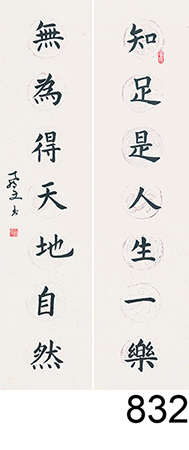 知足是人生一樂
無為得天地自然
832